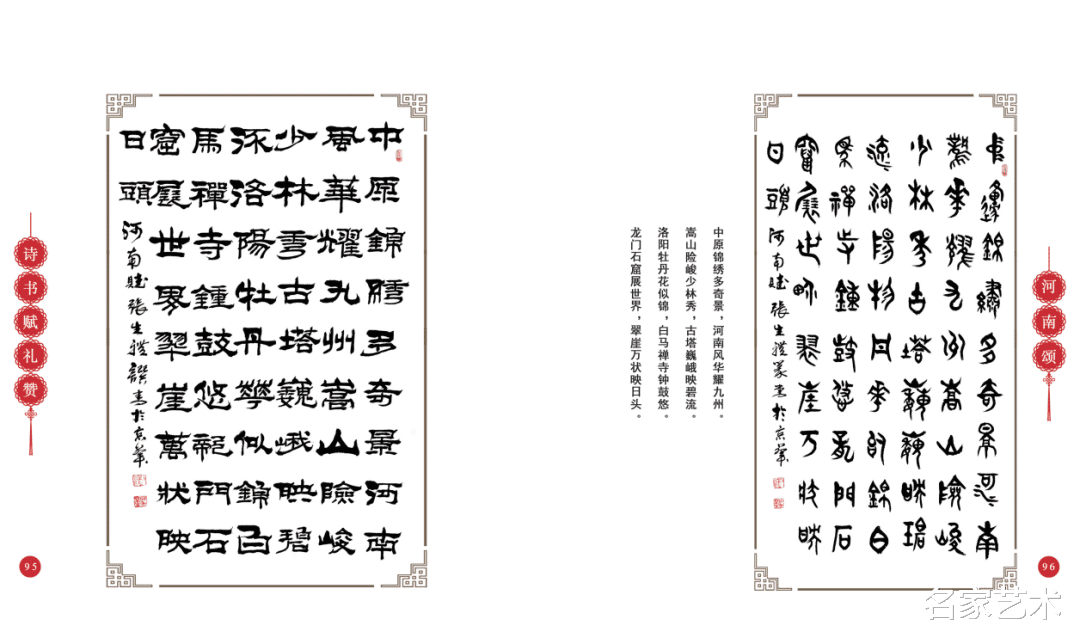 诗书赋礼赞
中原錦繡多奇景河南
風華耀九州嵩山險峻
少林秀古塔巍峨映碧
流洛陽牡丹花似錦白
馬禪寺鐘鼓悠龍門石
窟展世界翠崖萬狀映
日頭
河南賦張生禮撰書於京華
95
中原锦绣多奇景，河南风华耀九州。
嵩山险峻少林秀，古塔巍峨映碧流。
洛阳牡丹花似锦，白马禅寺钟鼓悠。
龙门石窟展世界，翠崖万状映日头。
中原錦繡多奇景河南
風華耀九州嵩山險峻
少林秀古塔巍峨映碧
流洛陽牡丹花似錦白
馬禪寺鐘鼓悠龍門石
窟展世界翠崖万狀映
日頭
河南賦張生禮篆書於京華
河南颂
96
名家艺术